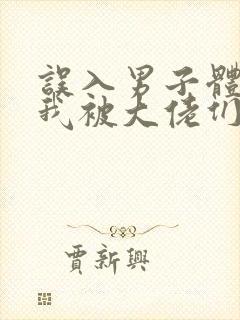 誤入男子體
我被大佬们
賈新興